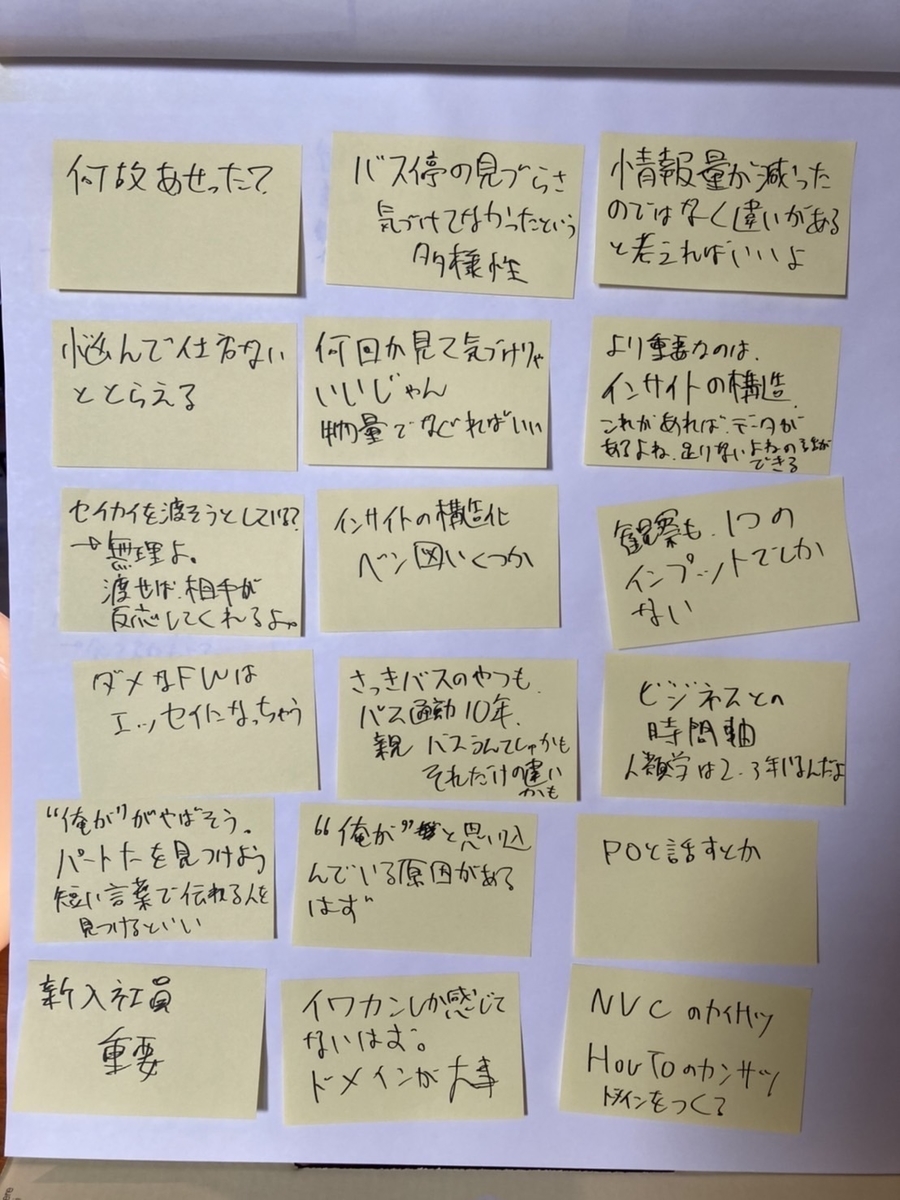 何故あせった?
バス停の見づらさ
気づけてなかったという
多様性
情報量が減った
のではなく違いがある
と考えればいいよ
悩んで仕方ない
ととらえる
何回か見て気づけりゃ
いいじゃん
物量でなぐればいい
より重要なのは、
インサイトの構造、
これがあれば、データが
あるよね、足りないよねの
できる
セイカイを渡そうとしている?
→無理よ。
渡せば、相手が
反応してくれるよ。
インサイトの構造化
ベン図いくつか
観察も、1つの
インプットでしか
ない
ダメなFWは
エッセイになっちゃう
さっきバスのやつも、
バス通勤10年、
親 バスうんてんしゅかも
それだけの違い
かも
ビジネスとの
時間軸
人類学は2、3年なんだよ
"俺が"がやばそう。
パートナーを見つけよう
短い言葉で伝れる人を
見つけるといい
"俺が"と思い込
んでいる原因がある
はず
POと話すとか
新入社員
重要
イワカンしか感じて
ないはず。
ドメインが大事
NVCの
HowToのカンサツ
ドメインをつくる